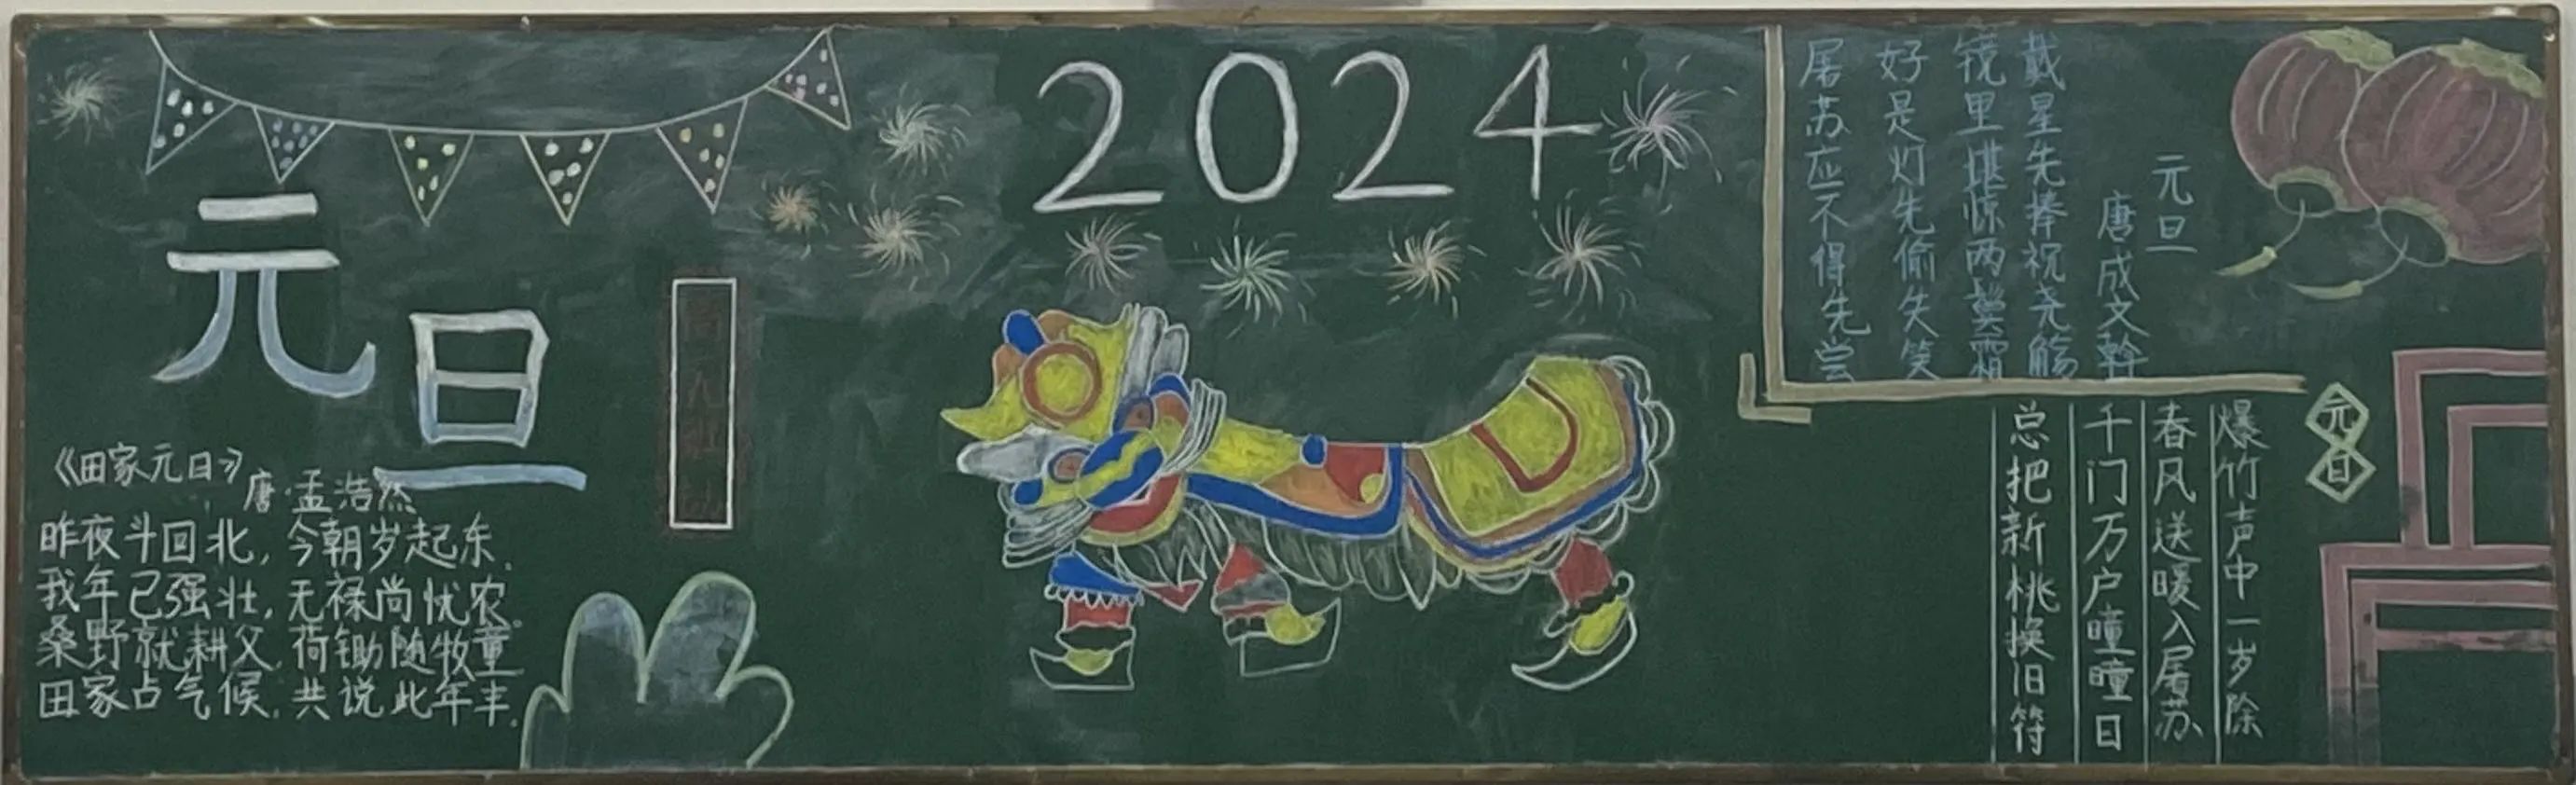 2024
元
旦
《田家元日》
唐·孟浩然
昨夜斗回北，今朝岁起东。
我年已强壮，无禄尚忧农。
桑野就耕父，荷锄随牧童
田家占气候，共说此年丰。
元旦
唐 成文幹
戴星先捧祝尧觞
镜里堪惊两鬓霜
好是灯先偷失笑
屠苏应不得先尝
元日
爆竹声中一岁除
春风送暖入屠苏
千门万户曈曈日
总把新桃换旧符